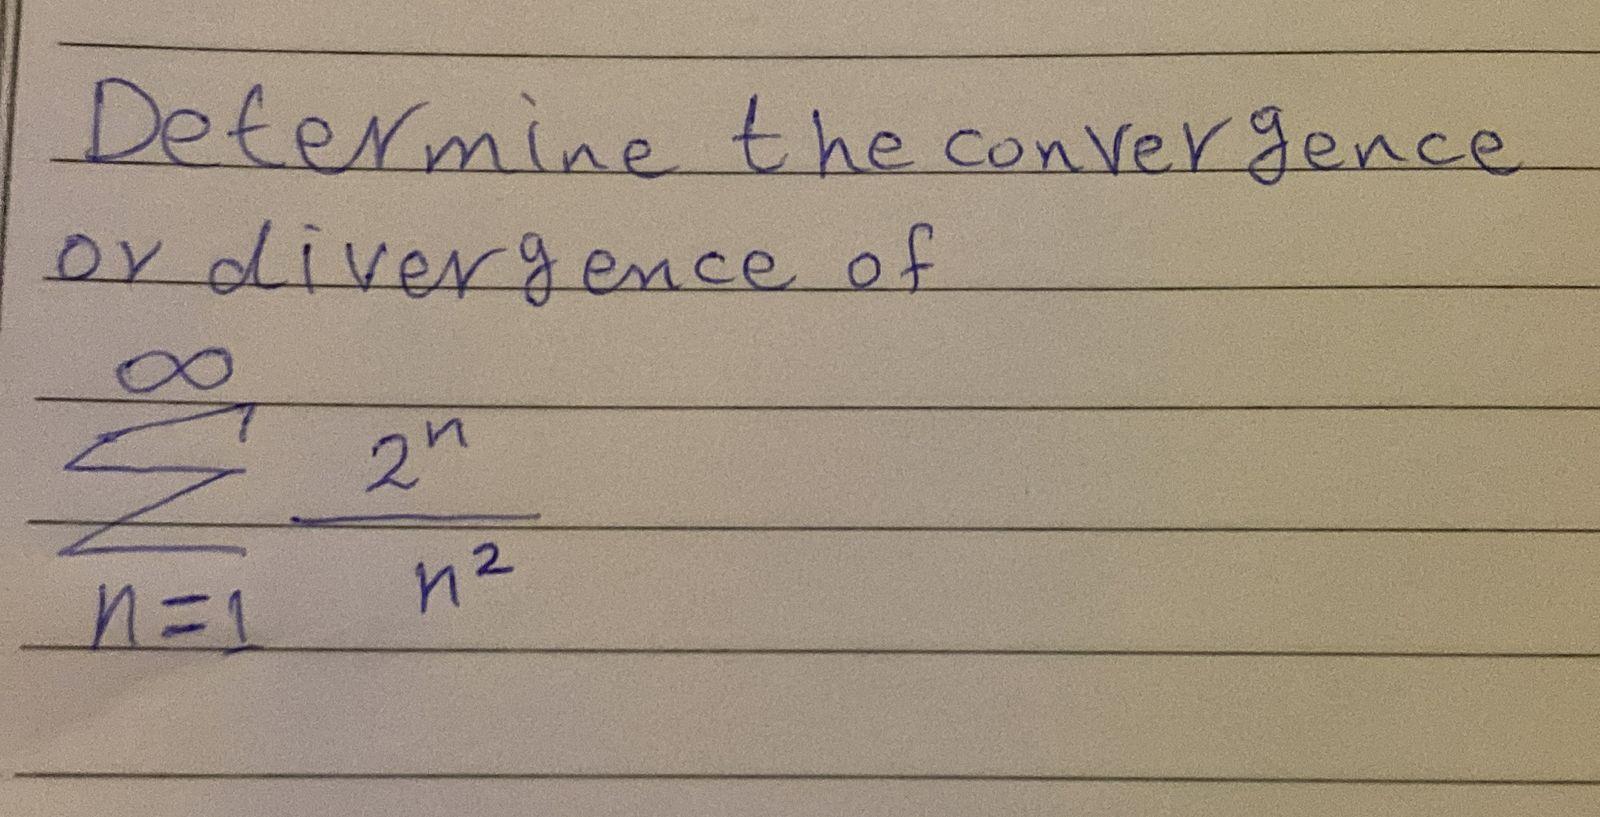 Determine the convergence
or divergence of
∞
∑ 2ⁿ
n=1 n²